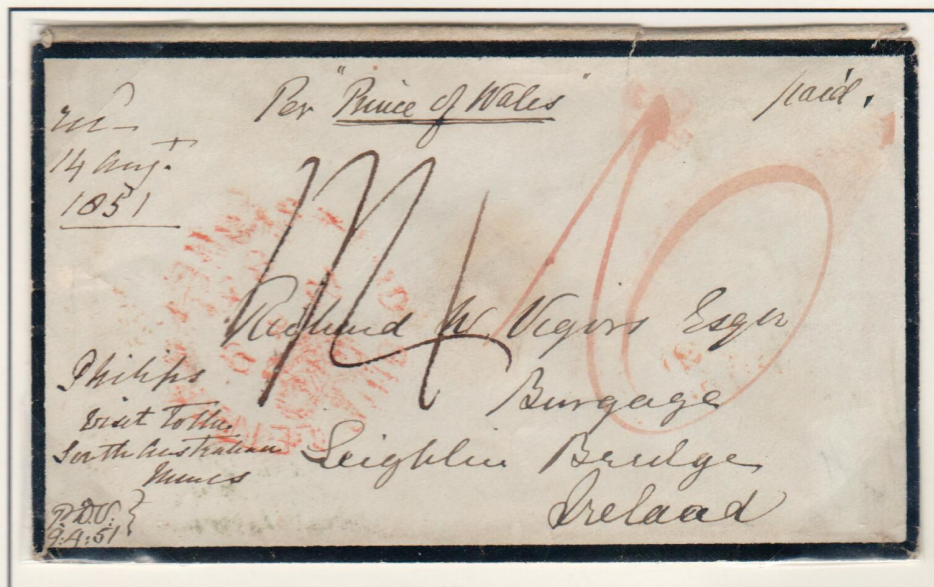 Per "Prince of Wales"
paid.
14 Augt.
1851
Richard W Vigors Esqr
Burgage
Leighlin Bridge
Ireland
Philips
Visit to the
South Australian
Mines
9.4.51